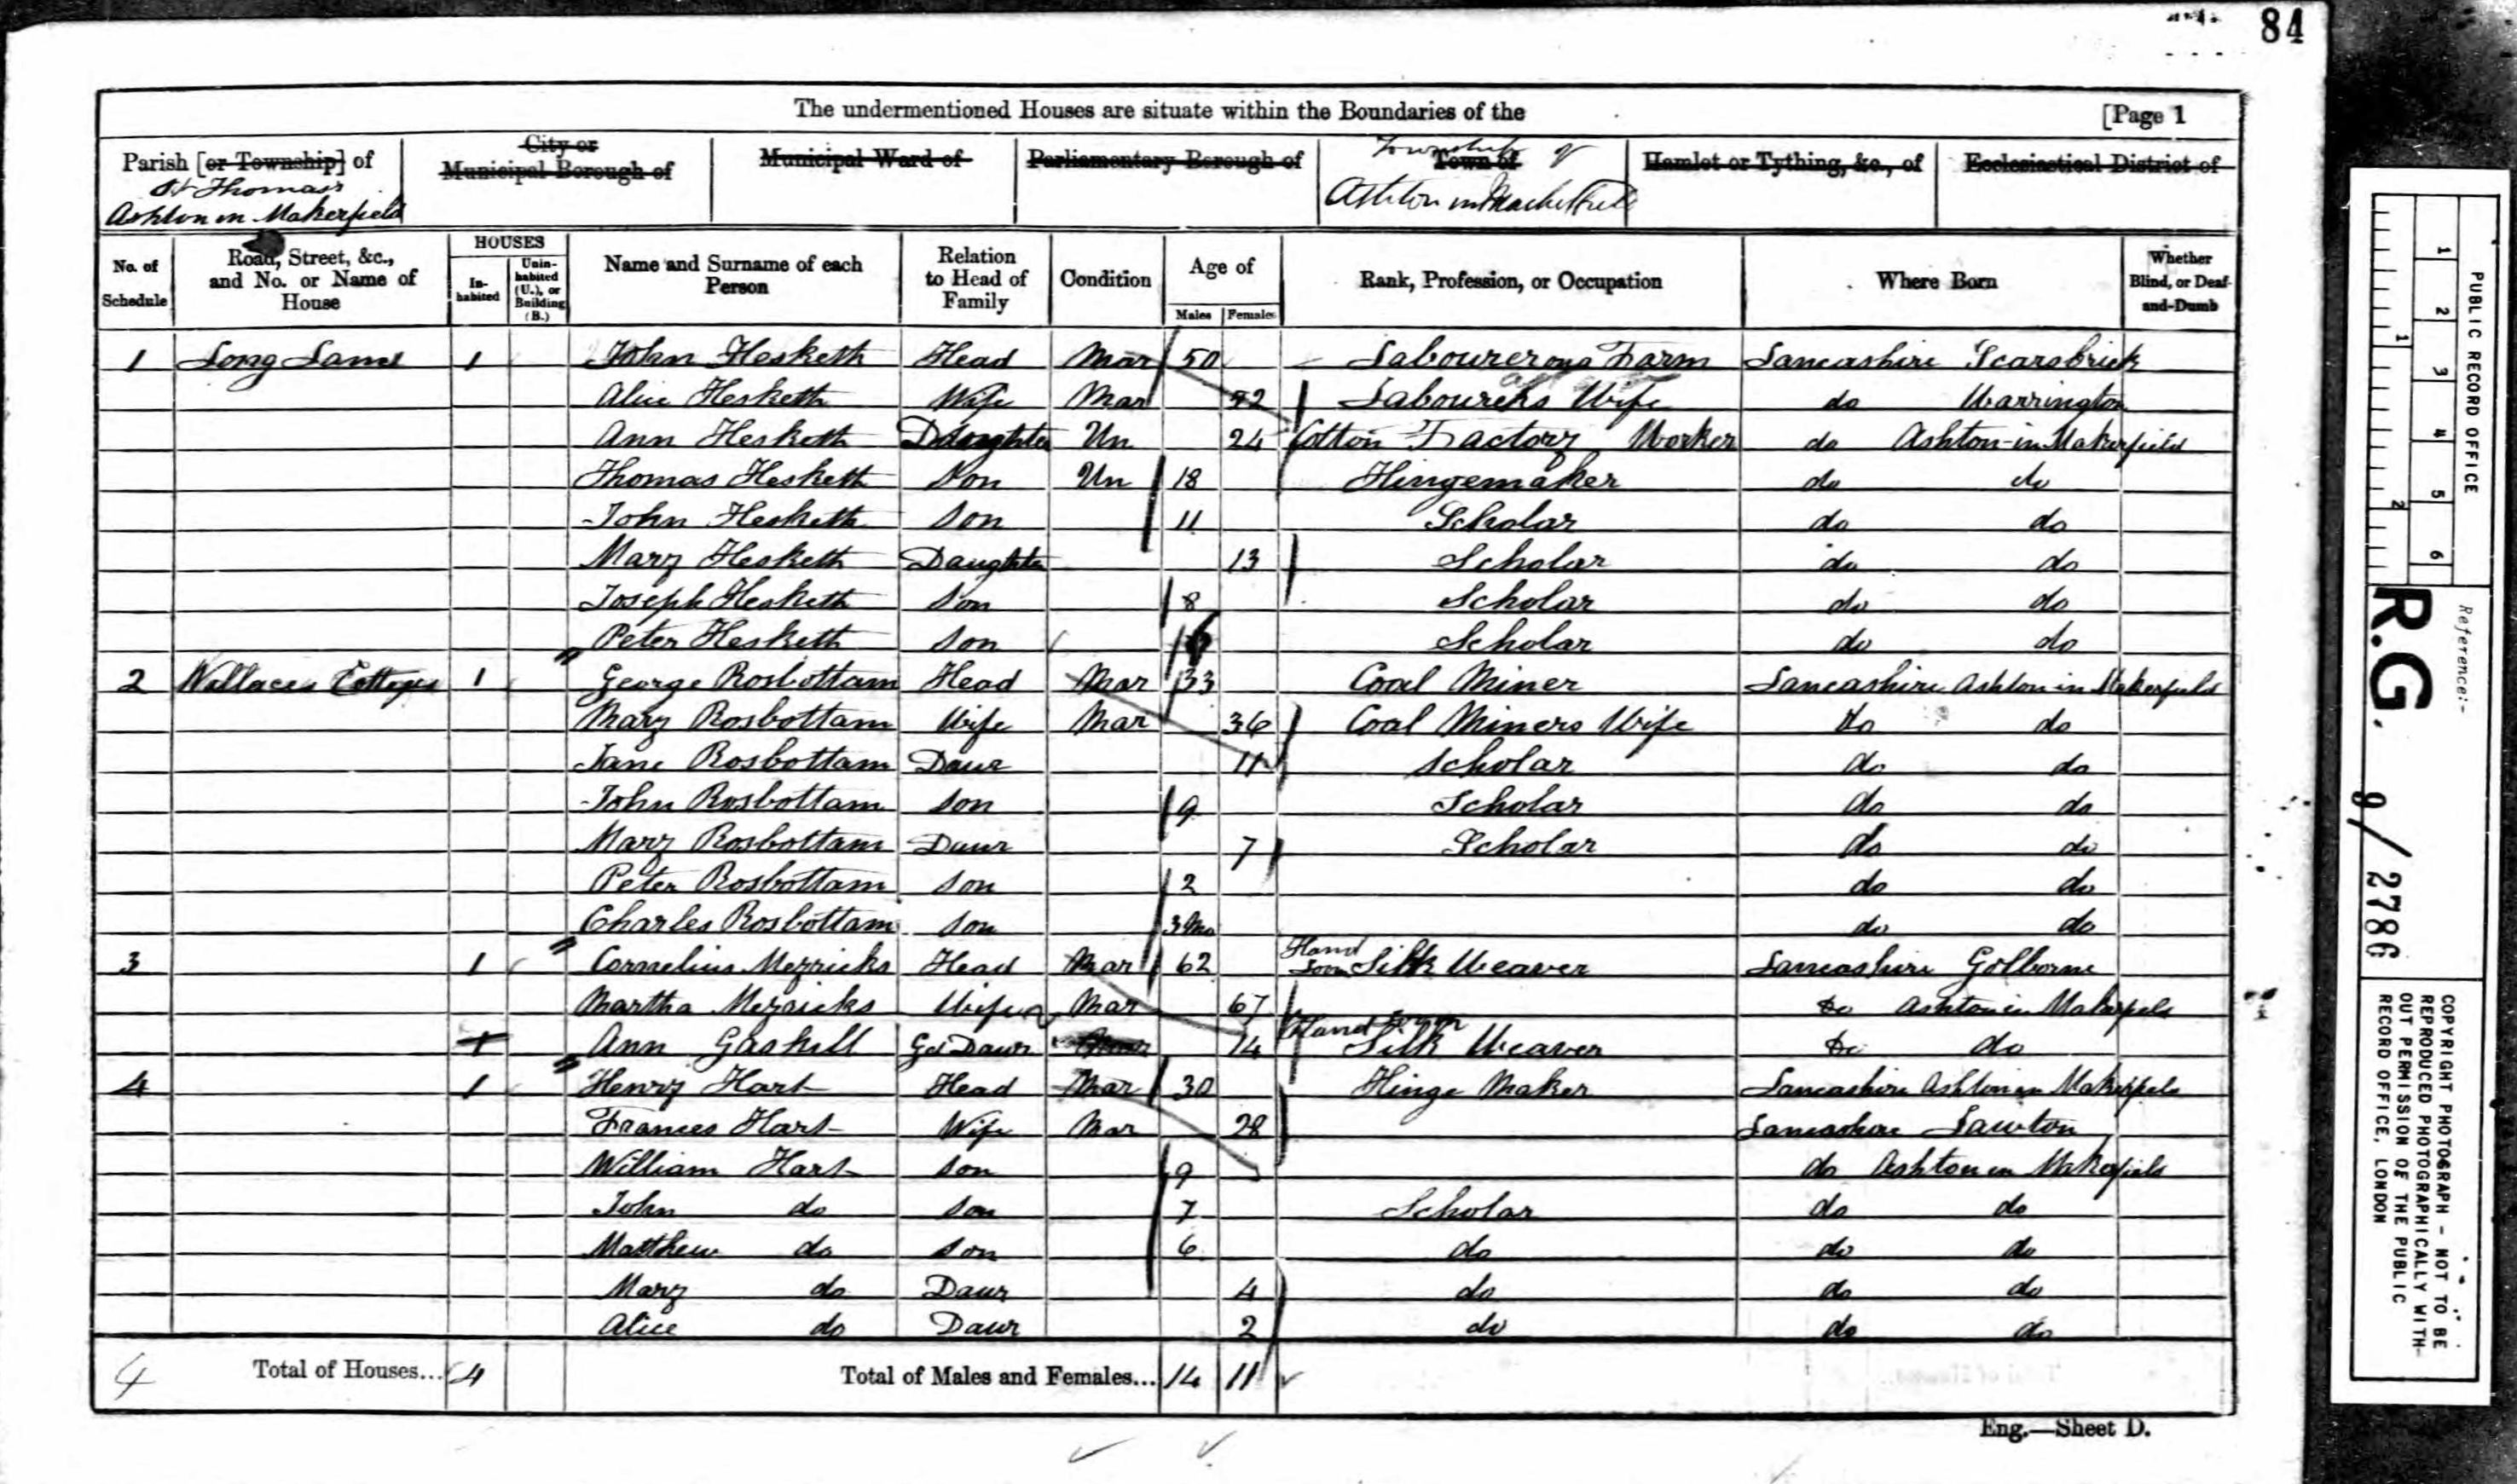 84
The undermentioned Houses are situate within the Boundaries of the [Page 1
Parish [or Township] of St Thomas's Ashton in Makerfield
City or Municipal Borough of
Municipal Ward of
Parliamentary Borough of
Town of Township of Ashton in Makerfield
Hamlet or Tything, &c., of
Ecclesiastical District of
No. of Schedule
Road, Street, &c., and No. or Name of House
HOUSES
In-habited
Unin-habited (U.), or Building (B.)
Name and Surname of each Person
Relation to Head of Family
Condition
Age of
Males Females
Rank, Profession, or Occupation
Where Born
Whether Blind, or Deaf-and-Dumb
1 Long Lane 1 John Hesketh Head Mar 50 Labourer on a Farm Lancashire Scarsbrick
Alice Hesketh Wife Mar 52 Labourers Wife do Warrington
Ann Hesketh Daughter Un 24 Cotton Factory Worker do Ashton-in-Makerfield
Thomas Hesketh Son Un 18 Hingemaker do do
John Hesketh Son 11 Scholar do do
Mary Hesketh Daughter 13 Scholar do do
Joseph Hesketh Son 8 Scholar do do
Peter Hesketh Son 6 Scholar do do
2 Wallaces Cottages 1 George Rosbottam Head Mar 33 Coal Miner Lancashire Ashton in Makerfield
Mary Rosbottam Wife Mar 36 Coal Miners Wife do do
Jane Rosbottam Daur 11 Scholar do do
John Rosbottam Son 9 Scholar do do
Mary Rosbottam Daur 7 Scholar do do
Peter Rosbottam Son 2 do do
Charles Rosbottam Son 3 Mo do do
3 1 Cornelius Merricks Head Mar 62 Hand Loom Silk Weaver Lancashire Golborne
Martha Merricks Wife Mar 67 do Ashton in Makerfield
1 Ann Gaskell Gd Daur 14 Hand Loom Silk Weaver do do
4 1 Henry Hart Head Mar 30 Hinge Maker Lancashire Ashton in Makerfield
Frances Hart Wife Mar 28 Lancashire Lawton
William Hart Son 9 do Ashton in Makerfield
John do Son 7 Scholar do do
Matthew do Son 6 do do do
Mary do Daur 4 do do do
Alice do Daur 2 do do do
4 Total of Houses... 4 Total of Males and Females... 14 11
Eng.—Sheet D.
PUBLIC RECORD OFFICE
1 2 3 4 5 6
1 2
Reference:-
R.G. 9/2786
COPYRIGHT PHOTOGRAPH - NOT TO BE
REPRODUCED PHOTOGRAPHICALLY WITH-
OUT PERMISSION OF THE PUBLIC
RECORD OFFICE, LONDON